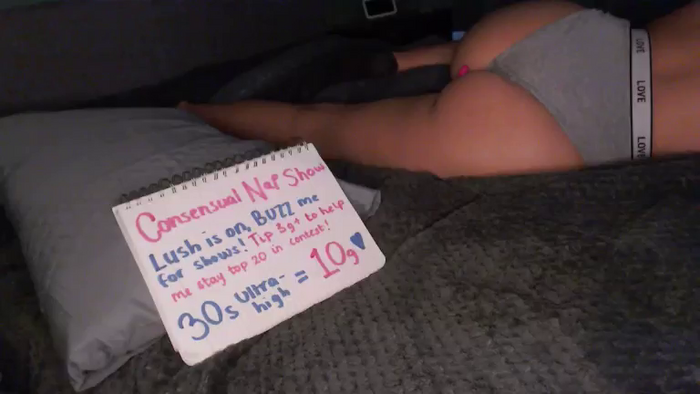 Consensual Nap Show
Lush is on, BUZZ me
for shows! Tip 3g+ to help
me stay top 20 in contest!
30s ultra-
high = 10g
LOVE
LOVE
LOVE